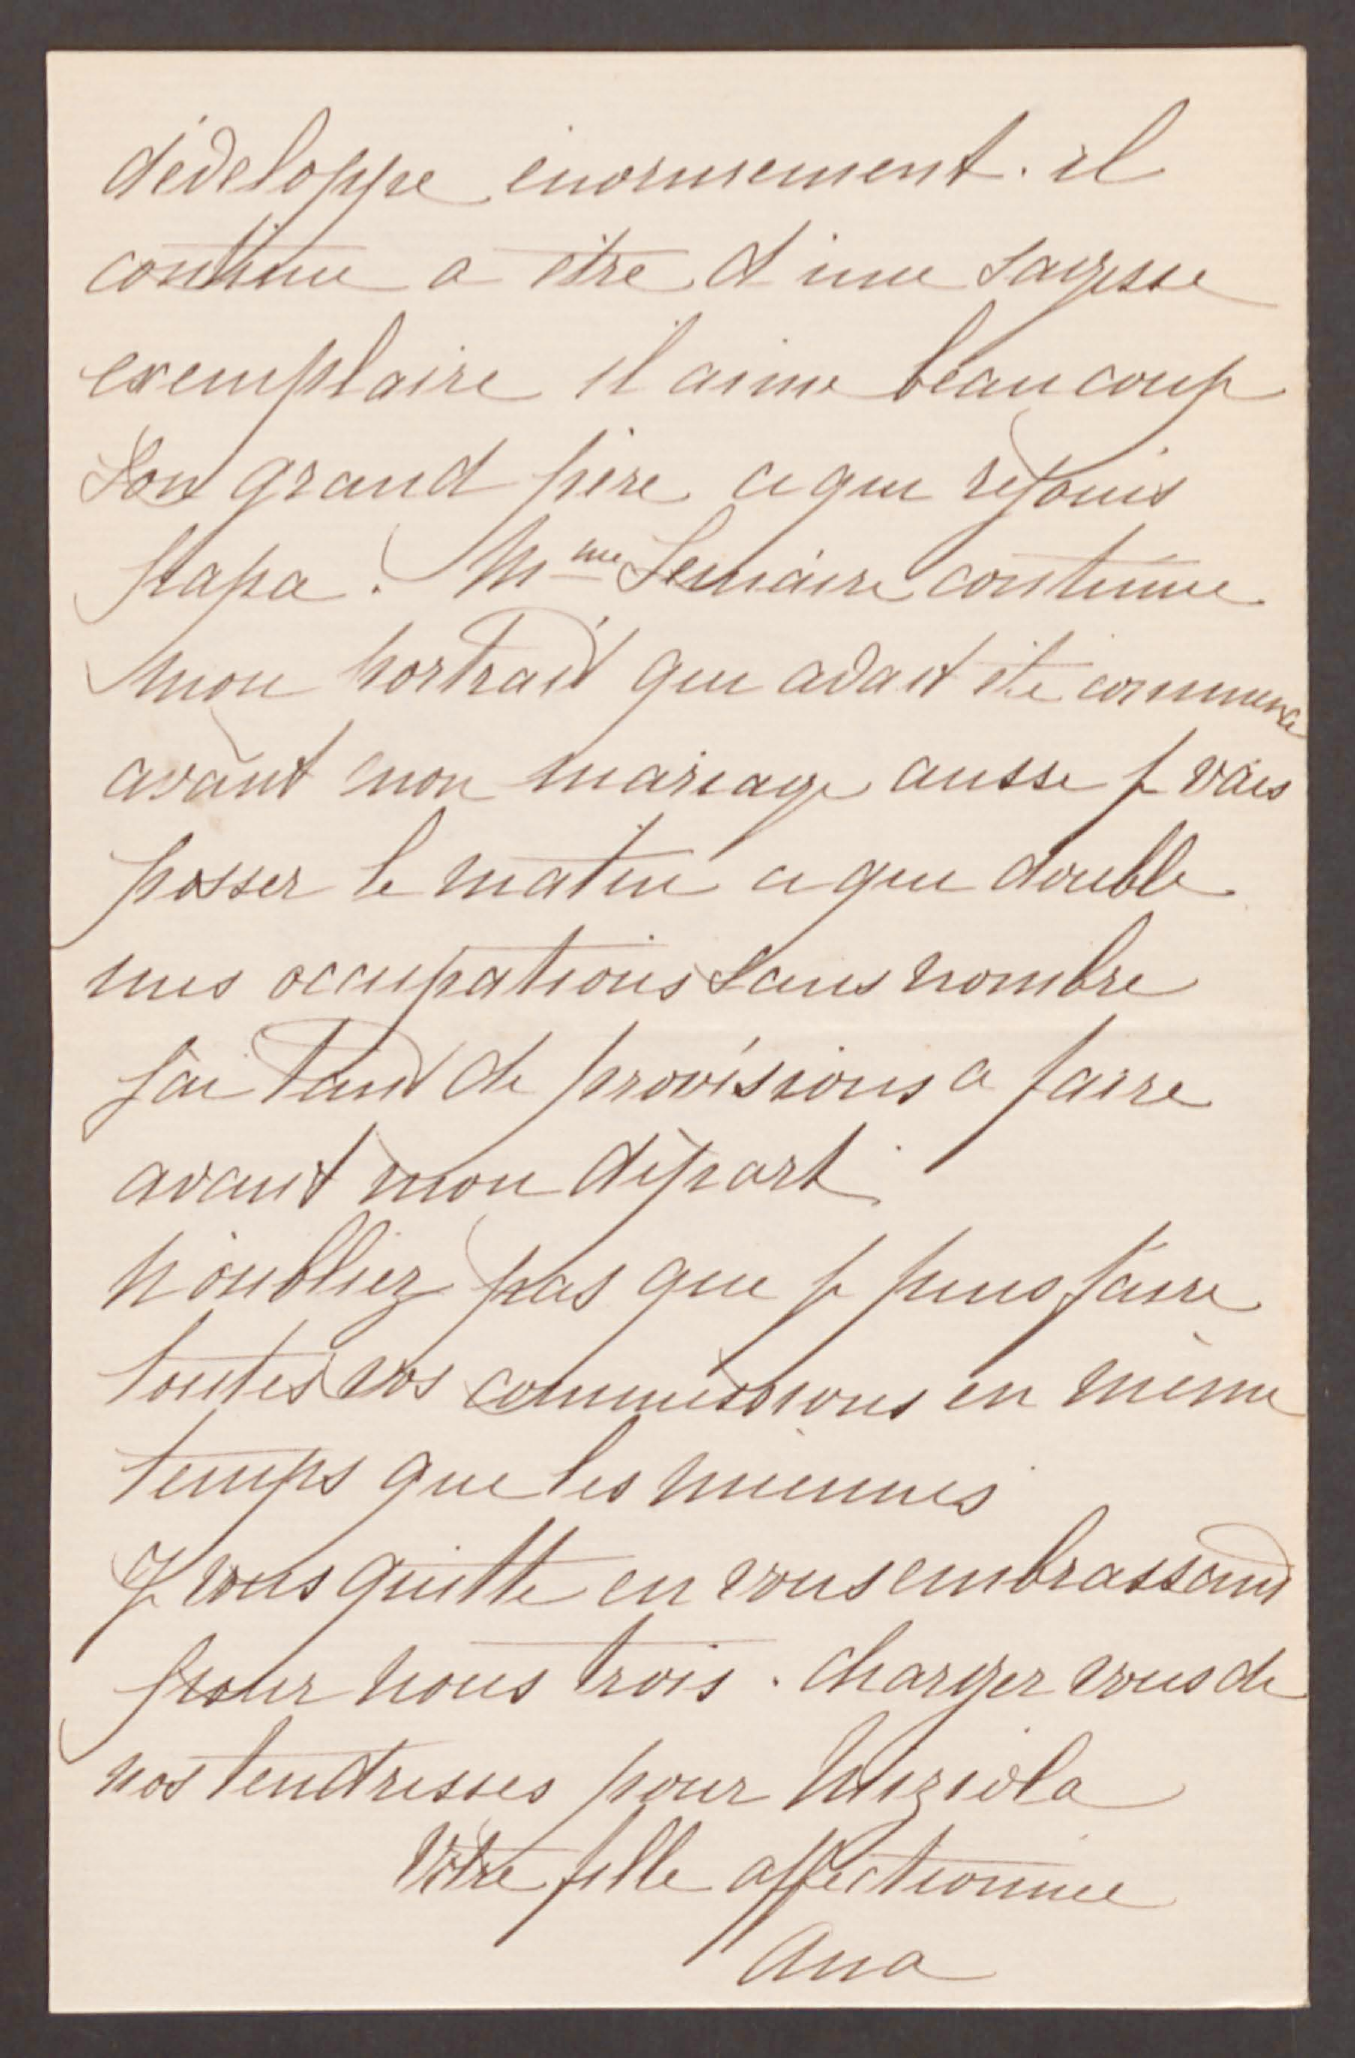 développe énormement. il
continue a être d'une sagesse
exemplaire il aime beaucoup
son grand père ce qui réjouis
papa. Mme Lemaire continue
mon portrait qui avait été commencé
avant mon mariage aussi je vais
posser le matin ce qui double
mes occupations sans nombre
j'ai tant de provisions a faire
avant mon départ
n'oubliez pas que je puis faire
toutes vos commissions en même
temps que les miennes
Je vous quitte en vous embrassant
pour nous trois. Charger vous de
nos tendresses pour
Votre fille affectionnée
Ana